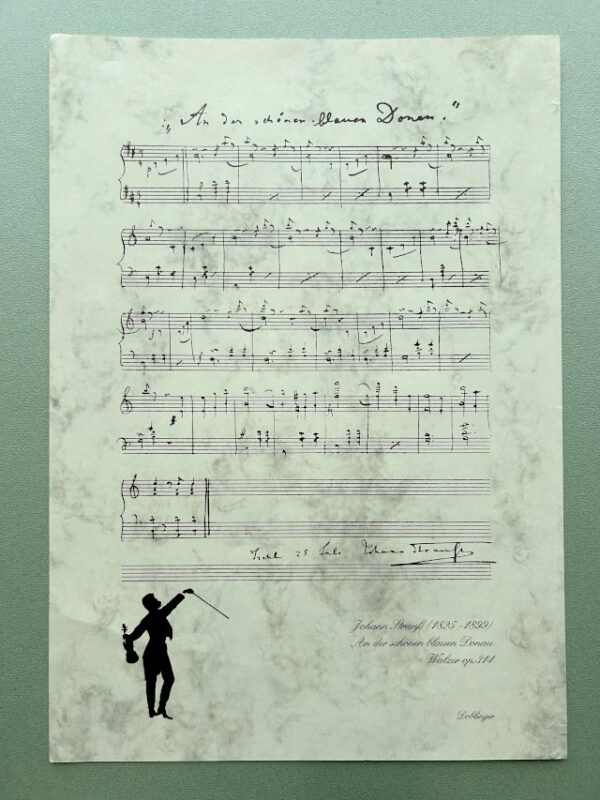 „An der schönen blauen Donau."
Ischl 25 Juli Johann Strauss
Johann Strauß (1825-1899)
An der schönen blauen Donau
Walzer op.314
Doblinger